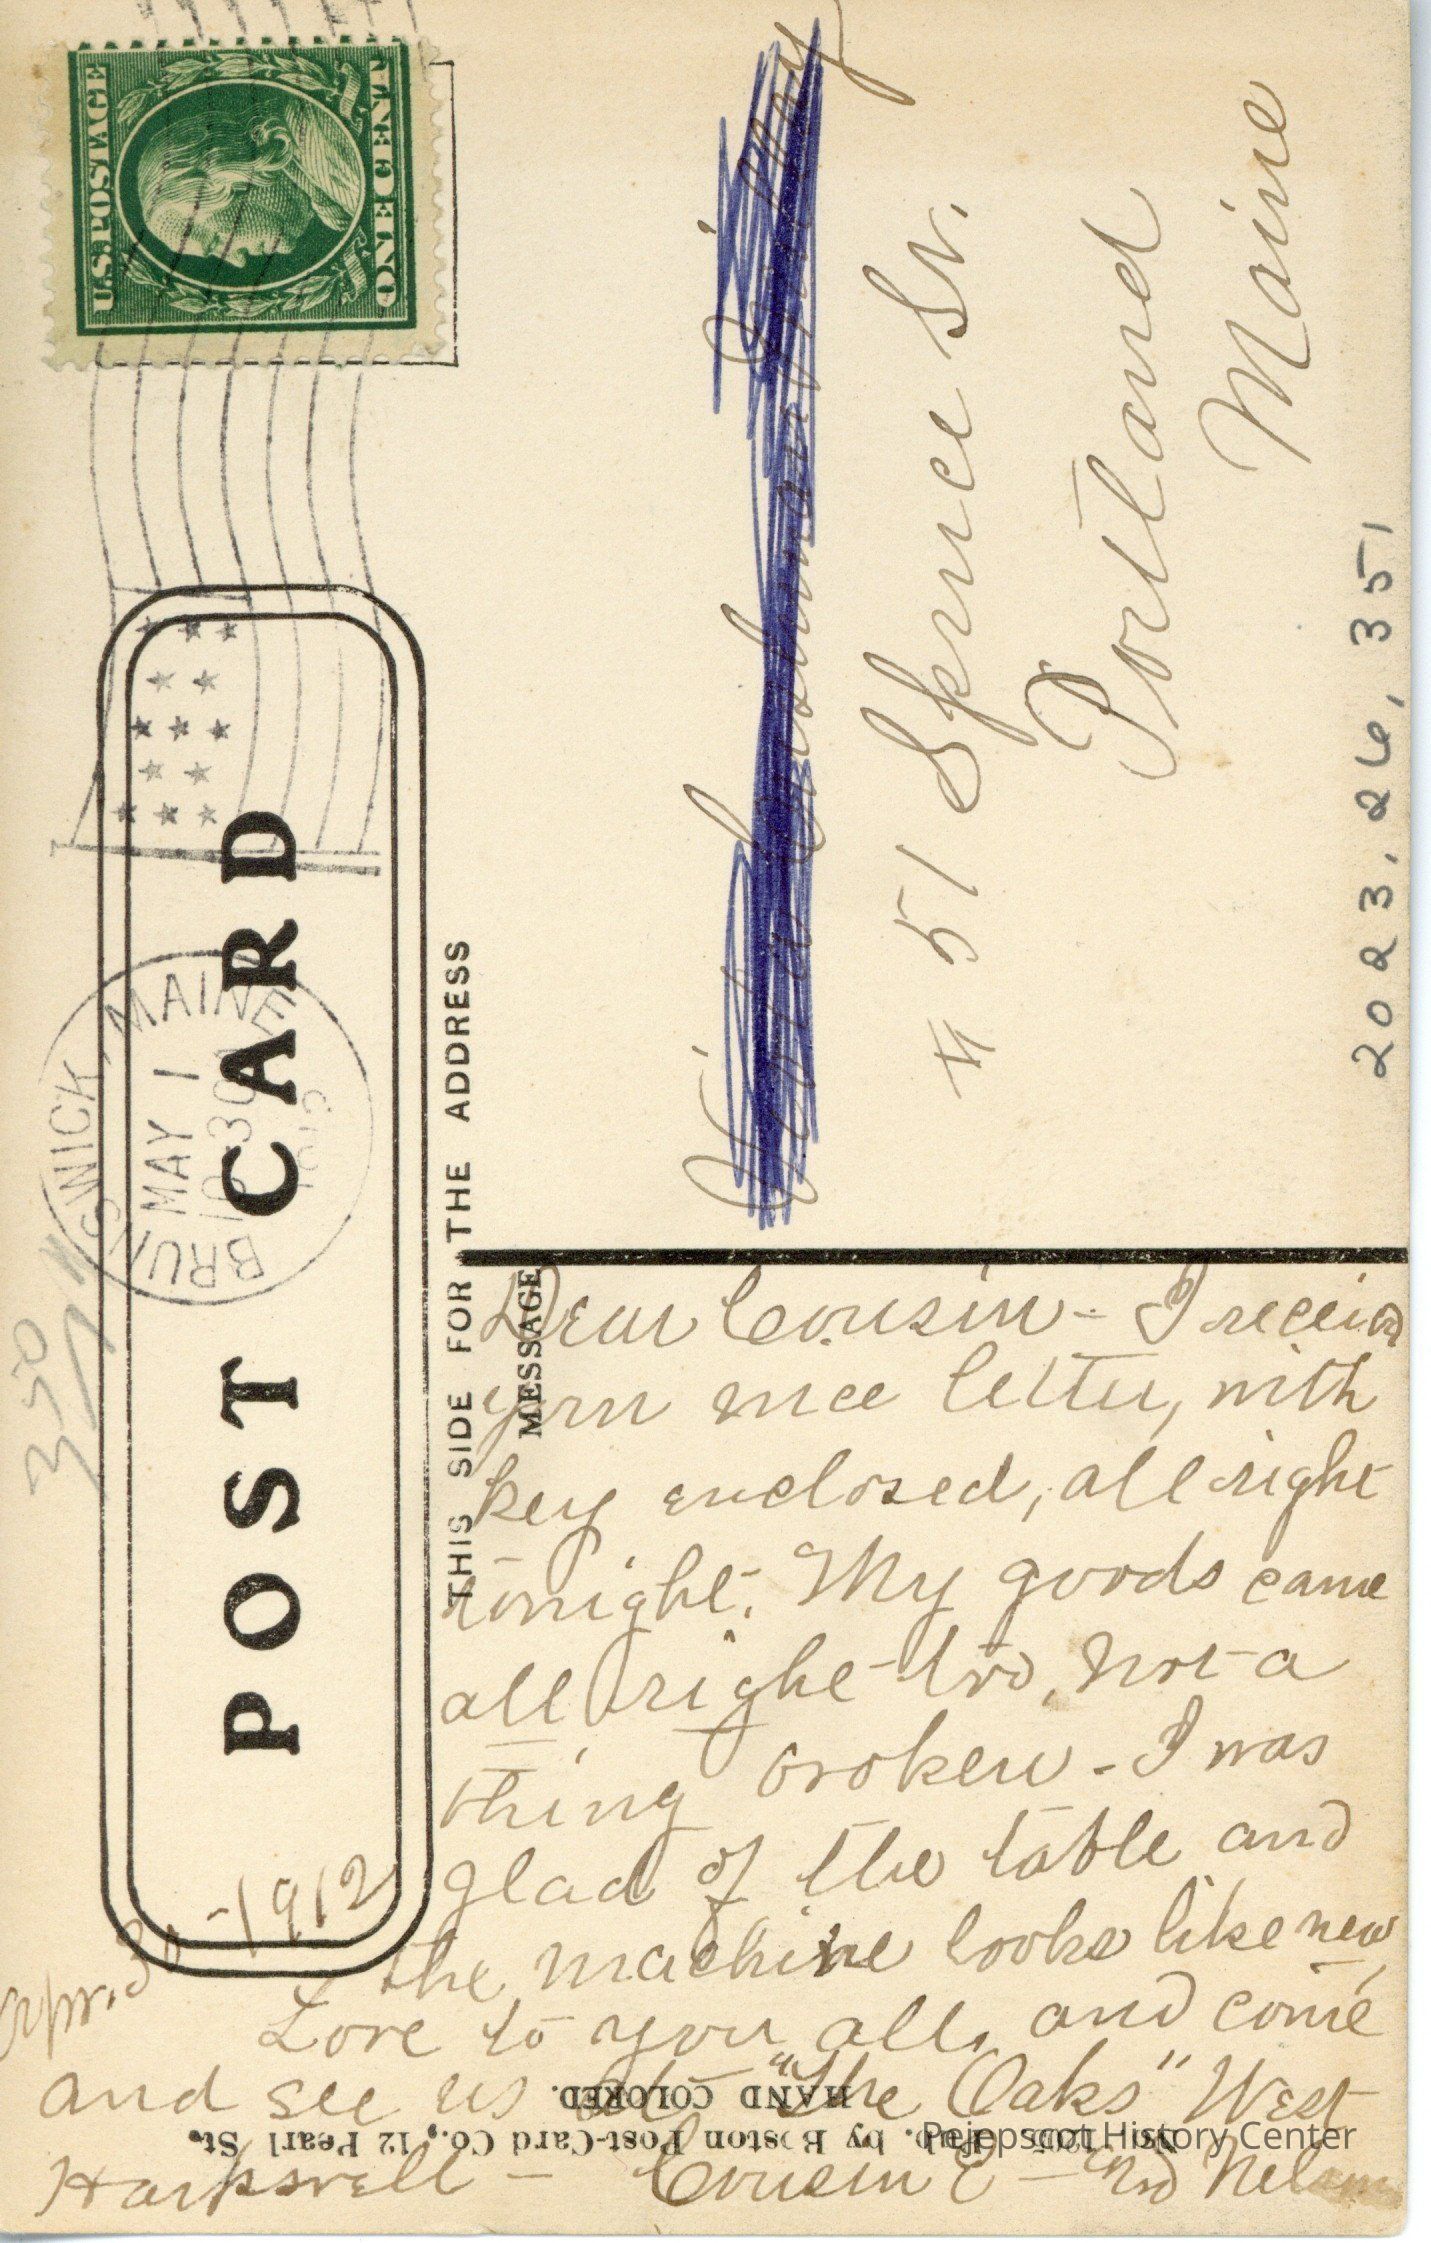 Apr. 30 - 1912
Dear Cousin - I received
your nice letter, with
key enclosed, all right
tonight. My goods came
all right too, not a
thing broken - I was
glad of the table and
the machine looks like new,
Love to you all, and come
and see us at "The Oaks" West
Harpswell - Cousin E - and Nelson
POST CARD
THIS SIDE FOR THE ADDRESS
MESSAGE
U.S. POSTAGE
ONE CENT
BRUNSWICK, MAINE
MAY 1
10 30
# 51 Spruce St.
Portland
Maine
2023.26.351
350
HAND COLORED.
Pub. by Boston Post-Card Co., 12 Pearl St.
Pejepscot History Center